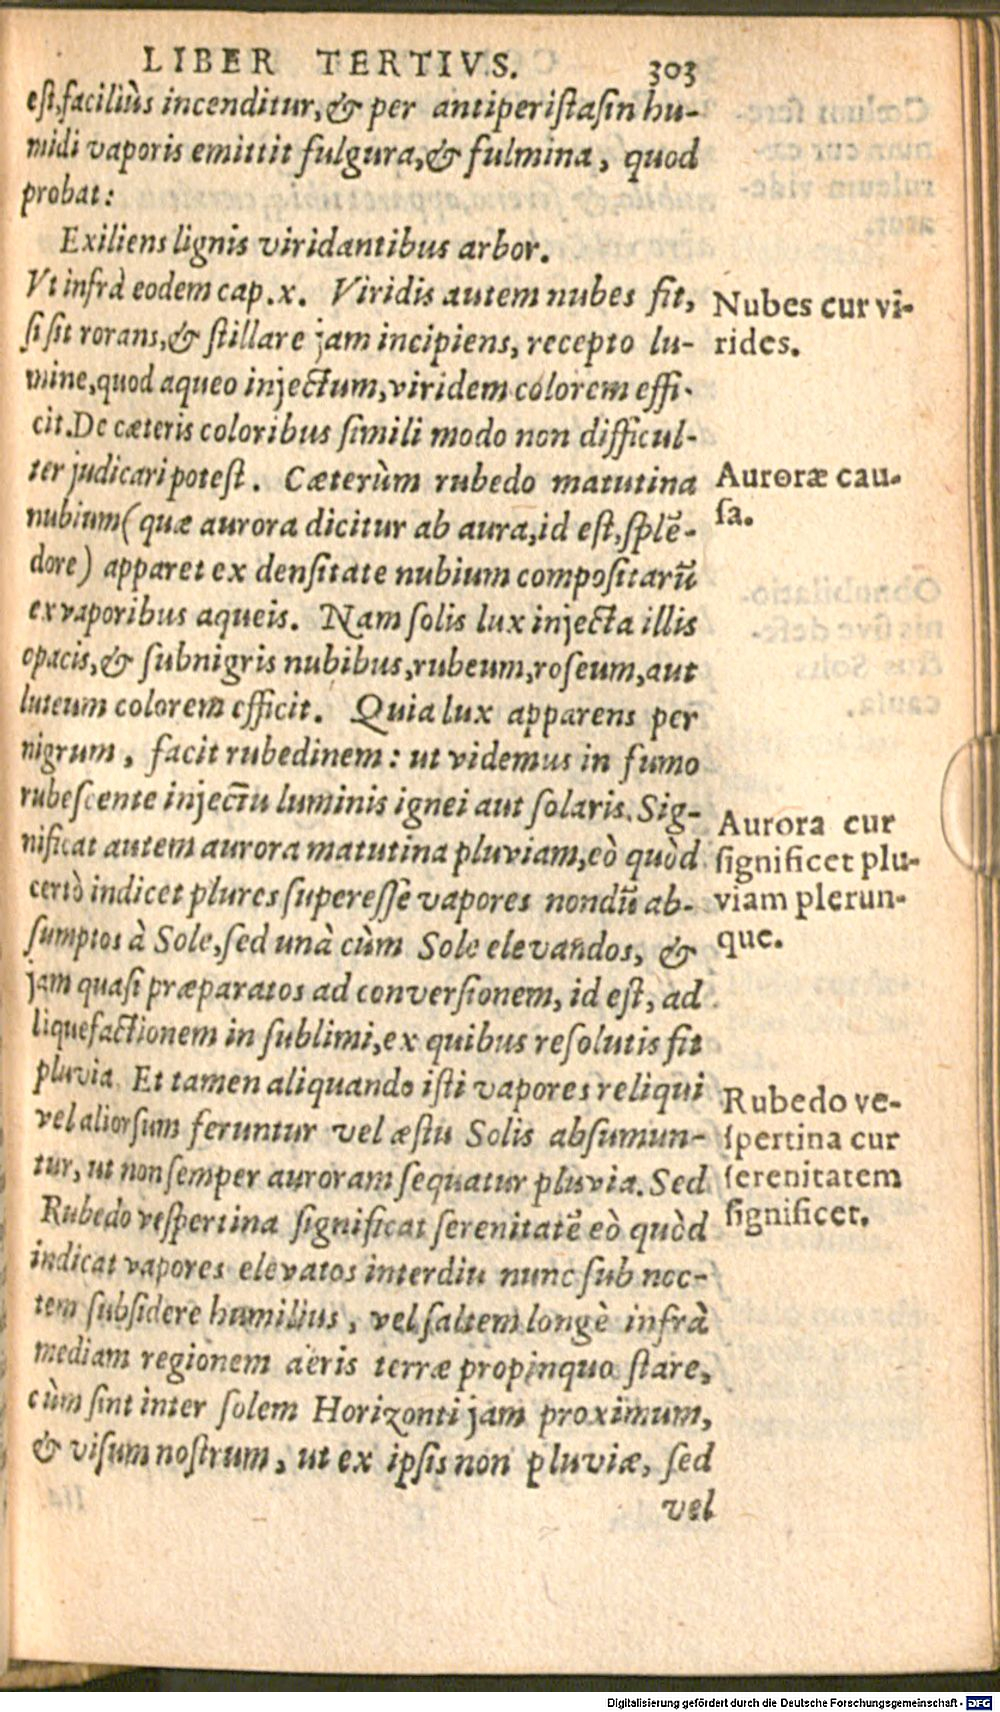 LIBER TERTIVS. 303
est, faciliùs incenditur, & per antiperistasin hu-
midi vaporis emittit fulgura, & fulmina, quod
probat:
Exiliens lignis viridantibus arbor.
Vt infrà eodem cap. x. Viridis autem nubes fit,
si sit rorans, & stillare jam incipiens, recepto lu-
mine, quod aqueo injectum, viridem colorem effi-
cit. De cæteris coloribus simili modo non difficul-
ter judicari potest. Cæterùm rubedo matutina
nubium (quæ aurora dicitur ab aura, id est, splē-
dore) apparet ex densitate nubium compositarū
ex vaporibus aqueis. Nam solis lux injecta illis
opacis, & subnigris nubibus, rubeum, roseum, aut
luteum colorem efficit. Quia lux apparens per
nigrum, facit rubedinem: ut videmus in fumo
rubescente injectu luminis ignei aut solaris. Sig-
nificat autem aurora matutina pluviam, eò quòd
certò indicet plures superesse vapores nondū ab-
sumptos à Sole, sed unà cùm Sole elevandos, &
jam quasi præparatos ad conversionem, id est, ad
liquefactionem in sublimi, ex quibus resolutis fit
pluvia. Et tamen aliquando isti vapores reliqui
vel aliorsum feruntur vel æstu Solis absumun-
tur, ut non semper auroram sequatur pluvia. Sed
Rubedo vespertina significat serenitatē eò quòd
indicat vapores elevatos interdiu nunc sub noc-
tem subsidere humilius, vel saltem longè infrà
mediam regionem aëris terræ propinquo stare,
cùm sint inter solem Horizonti jam proximum,
& visum nostrum, ut ex ipsis non pluviæ, sed
vel
Nubes cur vi-
rides.
Auroræ cau-
sa.
Aurora cur
significet plu-
viam plerun-
que.
Rubedo ve-
spertina cur
serenitatem
significet.
Digitalisierung gefördert durch die Deutsche Forschungsgemeinschaft - DFG